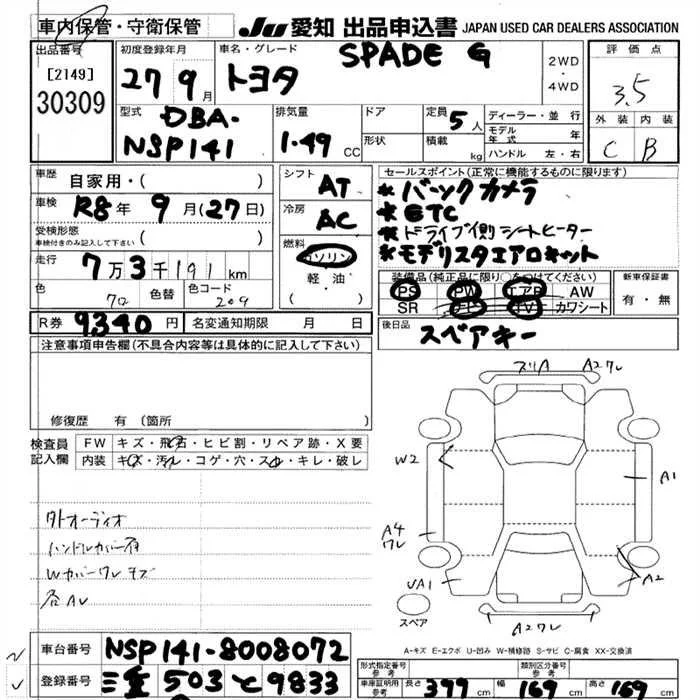 車内保管・守衛保管
JU 愛知 出品申込書 JAPAN USED CAR DEALERS ASSOCIATION
出品番号
[2149]
30309
初度登録年月
27 9月
車名・グレード
トヨタ SPADE G
2WD
・
4WD
評価点
3.5
外装 内装
C B
型式
DBA-
NSP141
排気量
1.49 CC
ドア
形状
定員 5人
積載 kg
ディーラー・並行
モデル年式 年
ハンドル 左・右
車歴 自家用・( )
車検 R8年 9月(27日)
受検形態
車検付きのみ記入して下さい ( )
走行 7万3千191km
色 クロ 色替 色コード 209
シフト AT
冷房 AC
燃料
ガソリン
軽・油
( )
セールスポイント(正常に機能するものに限ります)
*バックカメラ
*ETC
*ドライブ側シートヒーター
*モデリスタエアロキット
装備品(純正品に限り○をつけてください)
PS PW エアB AW
SR ナビ TV カワシート
新車保証書
有・無
R券 9340円 名変通知期限 月 日
後日品 スペアキー
注意事項申告欄(不具合内容等は具体的に記入して下さい)
修復歴 有(箇所
検査員記入欄
FW キズ・飛石・ヒビ割・リペア跡・X要
内装 キズ・汚レ・コゲ・穴・スレ・キレ・破レ
外オーディオ
ハンドルカバー有
Wカバーワレ キズ
各AU
スリA A2ワレ
W2
A1
A4
ワレ
UA1
A2
スペア
A2ワレ
A-キズ E-エクボ U-凹み W-補修跡 S-サビ C-腐食 XX-交換済
車台番号 NSP141-8008072
登録番号 三重 503 と 9833
形式指定番号
参考
類別区分番号
参考
車庫証明用
参考
長さ 399cm 幅 169cm 高さ 169cm